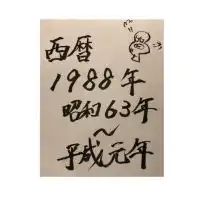 西暦
1988年
昭和63年
~
平成元年